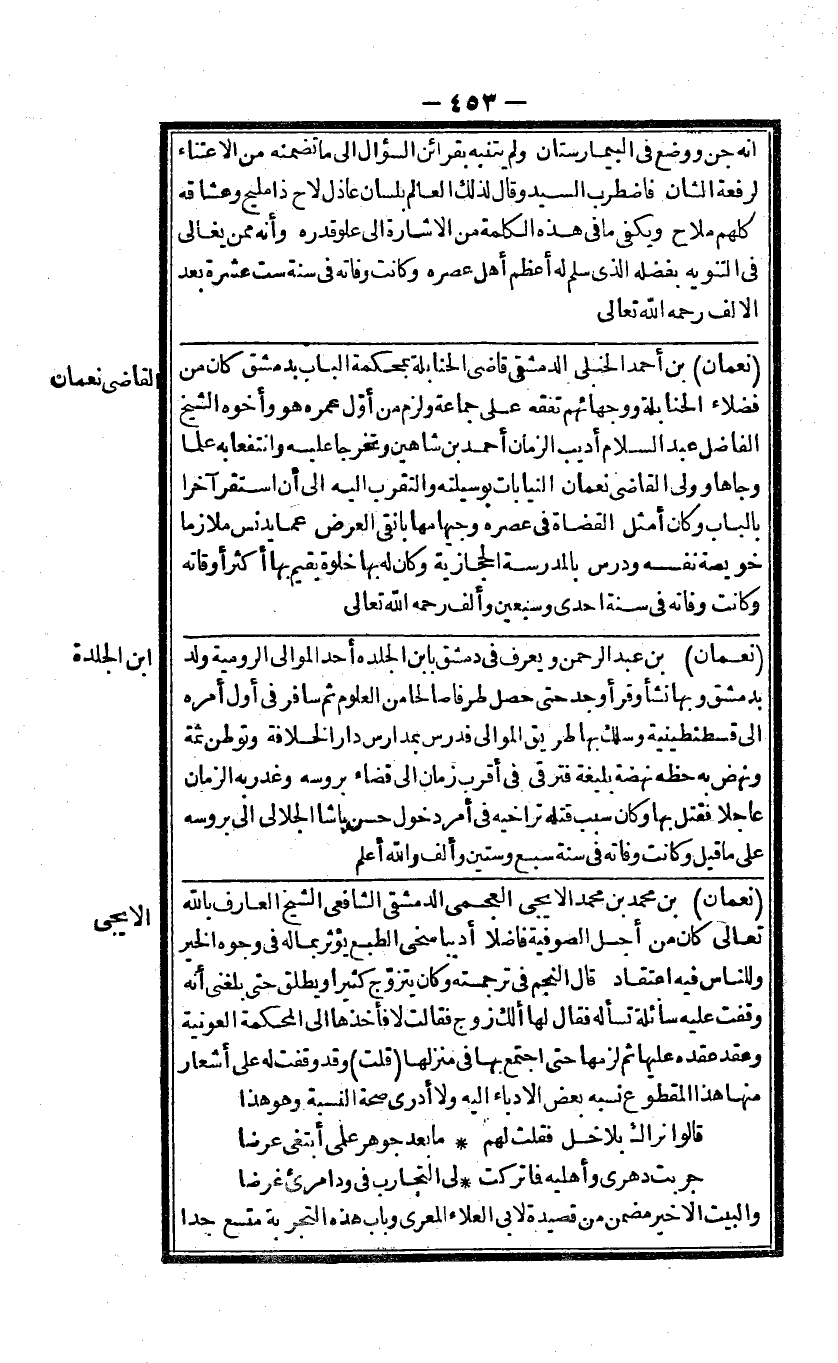 — ٤٥٣ —
انه جن ووضع فى البيمارستان ولم يتنبه بقرائن السؤال الى ما تضمنه من الاعتناء
لرفعة الشان فاضطرب السيد وقال لذلك العالم بلسان عاذل لاح ذا مليح وعشاقه
كلهم ملاح ويكفى ما فى هذه الكلمة من الاشارة الى علو قدره وأنه ممن يغالى
فى التنويه بفضله الذى سلم له أعظم أهل عصره وكانت وفاته فى سنة ست عشرة بعد
الالف رحمه الله تعالى
القاضى نعمان
(نعمان) بن أحمد الحنبلى الدمشقى قاضى الحنابلة بمحكمة الباب بدمشق كان من
فضلاء الحنابلة ووجهائهم تفقه على جماعة ولزم من أوّل عمره هو وأخوه الشيخ
الفاضل عبد السلام أديب الزمان أحمد بن شاهين وتخرجا عليه وانتفعا به علما
وجاها وولى القاضى نعمان النيابات بوسيلته والتقرب اليه الى أن استقر آخرا
بالباب وكان أمثل القضاة فى عصره وجيها مهابا نقى العرض عما يدنس ملازما
خويصة نفسه ودرس بالمدرسة الحجازية وكان له بها خلوة يقيم بها أكثر أوقاته
وكانت وفاته فى سنة احدى وسبعين وألف رحمه الله تعالى
ابن الجلدة
(نعمان) بن عبد الرحمن ويعرف فى دمشق بابن الجلده أحد الموالى الرومية ولد
بدمشق وبها نشأ وقرأ وجد حتى حصل طرفا صالحا من العلوم ثم سافر فى أول أمره
الى قسطنطينية وسلك بها طريق الموالى فدرس بمدارس دار الخلافة وتوطن ثمة
ونهض به حظه نهضة بليغة فترقى فى أقرب زمان الى قضاء بروسه وغدر به الزمان
عاجلا فقتل بها وكان سبب قتله تراخيه فى أمر دخول حسن باشا الجلالى الى بروسه
على ما قيل وكانت وفاته فى سنة سبع وستين وألف والله أعلم
الايجى
(نعمان) بن محمد بن محمد الايجى العجمى الدمشقى الشافعى الشيخ العارف بالله
تعالى كان من أجل الصوفية فاضلا أديبا سخى الطبع يؤثر بماله فى وجوه الخير
وللناس فيه اعتقاد قال النجم فى ترجمته وكان يتزوّج كثيرا ويطلق حتى بلغنى أنه
وقفت عليه سائلة تسأله فقال لها ألك زوج فقالت لا فأخذها الى المحكمة العونية
وعقد عقده عليها ثم لزمها حتى اجتمع بها فى منزلها (قلت) وقد وقفت له على أشعار
منها هذا المقطوع نسبه بعض الادباء اليه ولا أدرى صحة النسبة وهو هذا
قالوا نراك بلا خل فقلت لهم * ما بعد جوهر على أبتغى عرضا
جربت دهرى وأهليه فا تركت * لى التجارب فى ود امرئ غرضا
والبيت الاخير مضمن من قصيدة لابى العلاء المعرى وباب هذه التجربة متسع جدا